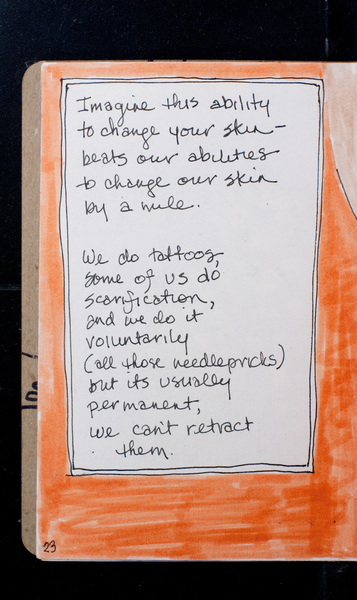 Imagine this ability
to change your skin—
beats our abilities
to change our skin
by a mile.
We do tattoos,
some of us do
scarification,
and we do it
voluntarily
(all those needlepricks)
but its usually
permanent,
we can't retract
them.
23